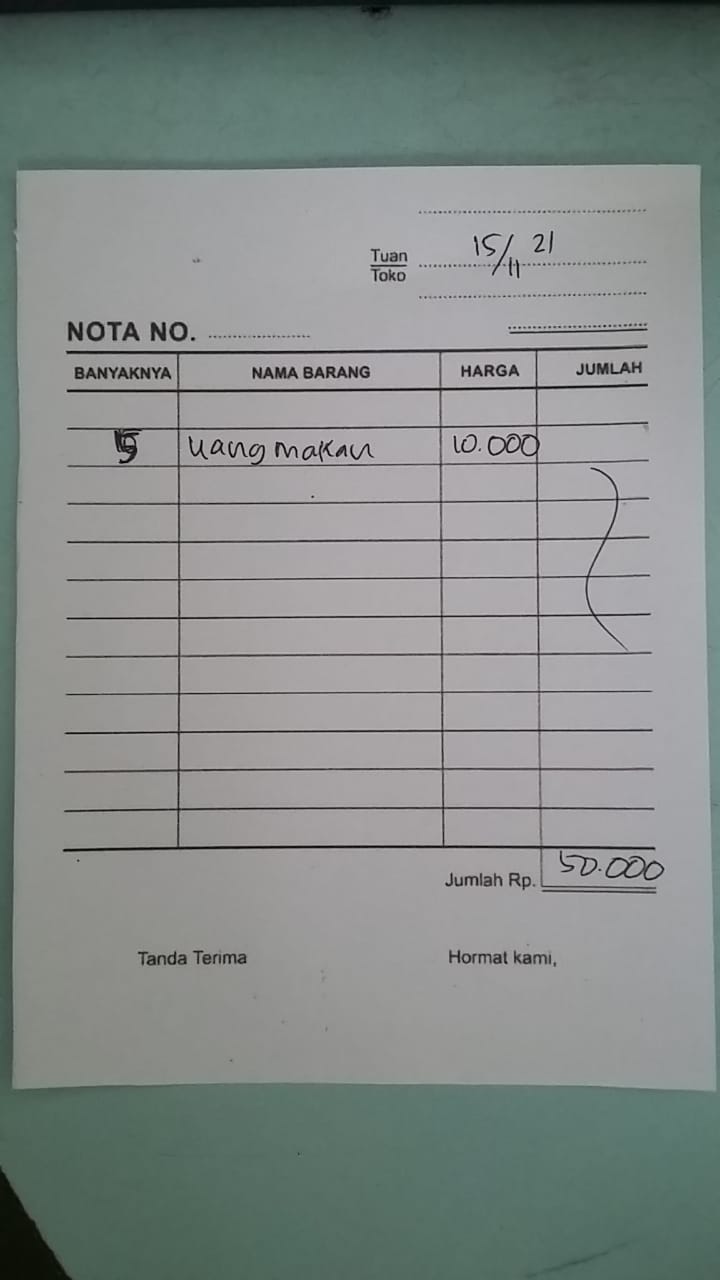 15/11 21
Tuan
Toko
NOTA NO.
BANYAKNYA NAMA BARANG HARGA JUMLAH
5 uang makan 10.000
Jumlah Rp. 50.000
Tanda Terima Hormat kami,